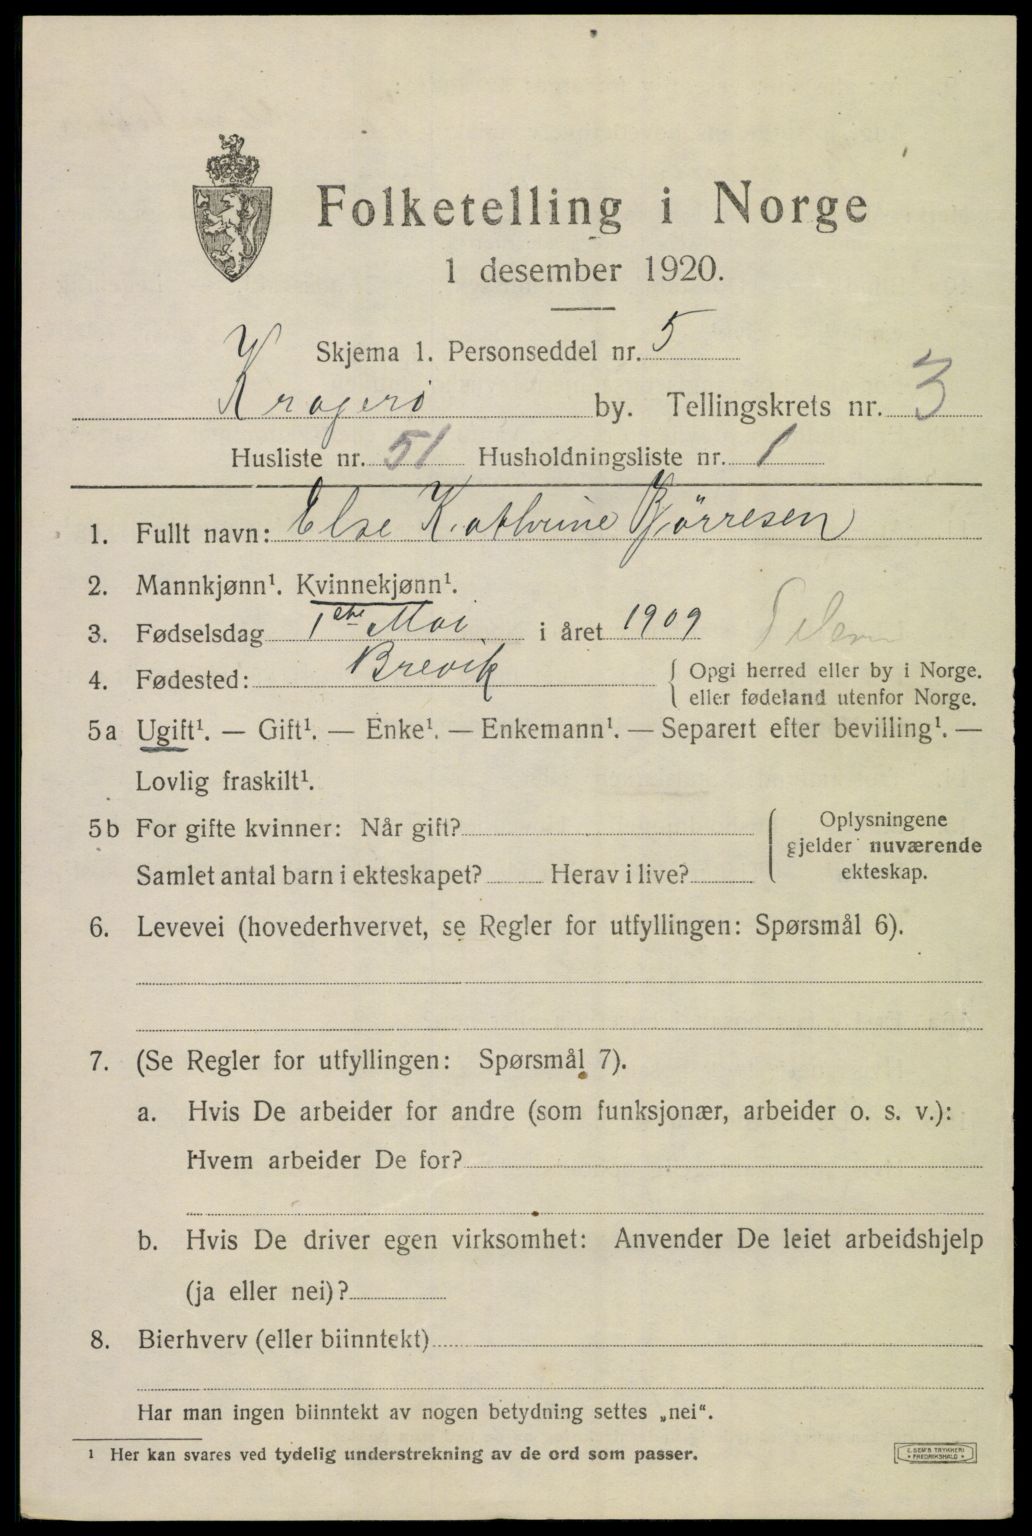 Folketelling i Norge
1 desember 1920.
Skjema 1. Personseddel nr. 5
Kragerö by. Tellingskrets nr. 3
Husliste nr. 51 Husholdningsliste nr. 1
1. Fullt navn: Else Kathrine Bjørresen
2. Mannkjønn¹. Kvinnekjønn¹.
3. Fødselsdag 1ste Mai i året 1909
4. Fødested: Brevik { Opgi herred eller by i Norge.
eller fødeland utenfor Norge.
5a Ugift¹. — Gift¹. — Enke¹. — Enkemann¹. — Separert efter bevilling¹. —
Lovlig fraskilt¹.
5b For gifte kvinner: Når gift?
Samlet antal barn i ekteskapet? Herav i live?
Oplysningene
gjelder nuværende
ekteskap.
6. Levevei (hovederhvervet, se Regler for utfyllingen: Spørsmål 6).
7. (Se Regler for utfyllingen: Spørsmål 7).
a. Hvis De arbeider for andre (som funksjonær, arbeider o. s. v.):
Hvem arbeider De for?
b. Hvis De driver egen virksomhet: Anvender De leiet arbeidshjelp
(ja eller nei)?
8. Bierhverv (eller biinntekt)
Har man ingen biinntekt av nogen betydning settes „nei".
¹ Her kan svares ved tydelig understrekning av de ord som passer.
E. SEM'S TRYKKERI
FREDRIKSHALD